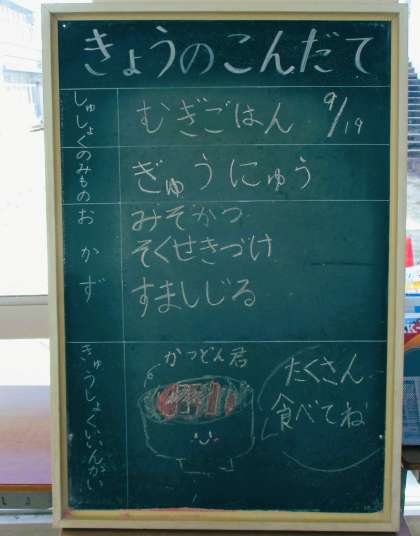 きょうのこんだて
しゅしょく
むぎごはん
9/19
のみもの
ぎゅうにゅう
おかず
みそかつ
そくせきづけ
すましじる
きゅうしょくいいんかい
かつどん君
たくさん
食べてね